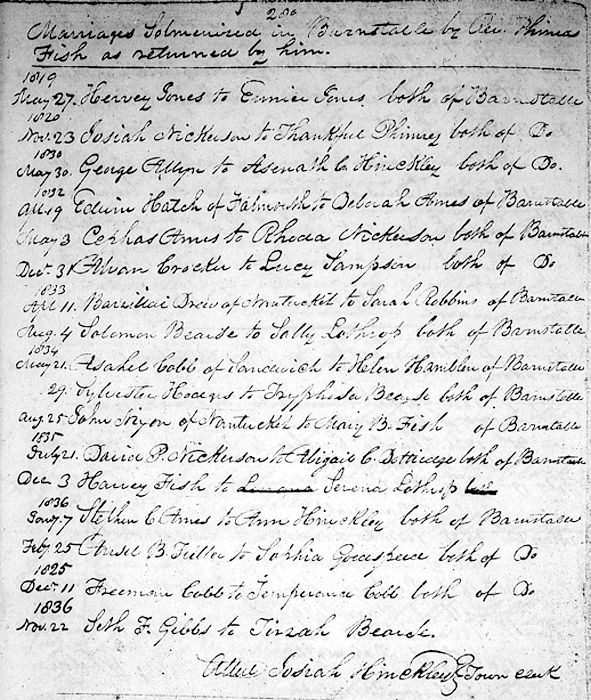 200
Marriages Solmenized in Barnstable by Rev. Phineas
Fish as returned by him.
1819
May 27. Hervey Jones to Eunice Jones both of Barnstable
1820
Nov. 23 Josiah Nickerson to Thankful Phinney both of Do
1830
May 30. George Allyn to Asenath C Hinckley both of Do.
1832
19 Edwin Hatch of Falmouth to Deborah Ames of Barnstable
May 3 Cephas Ames to Rhoda Nickerson both of Barnstable
Dec. 31 Alvan Crocker to Lucy Sampson both of Do
1833
Apl 11. Barzillai Drew of Nantucket to Sarah Robbins of Barnstable
Aug. 4 Solomon Bearse to Sally Lothrop both of Barnstable
1834
May 21. Asahel Cobb of Sandwich to Helen Hamblen of Barnstable
29. Sylvester Hodges to Tryphosa Bearse both of Barnstable
Aug. 25 John Nixon of Nantucket to Mary B. Fish of Barnstable
1835
July 21. David P. Nickerson to Abigail C. Dottridge both of Barnstable
Dec 3 Harvey Fish to Serena Lothrop
1836
Jany. 7 Stephen C Ames to Ann Hinckley both of Barnstable
Feby. 25 Ansel B. Fuller to Sophia Goodspeed both of Do
1825
Dec. 11 Freeman Cobb to Temperance Cobb both of Do
1836
Nov. 22 Seth F. Gibbs to Tirzah Bearse.
Attest Josiah Hinckley Town clerk